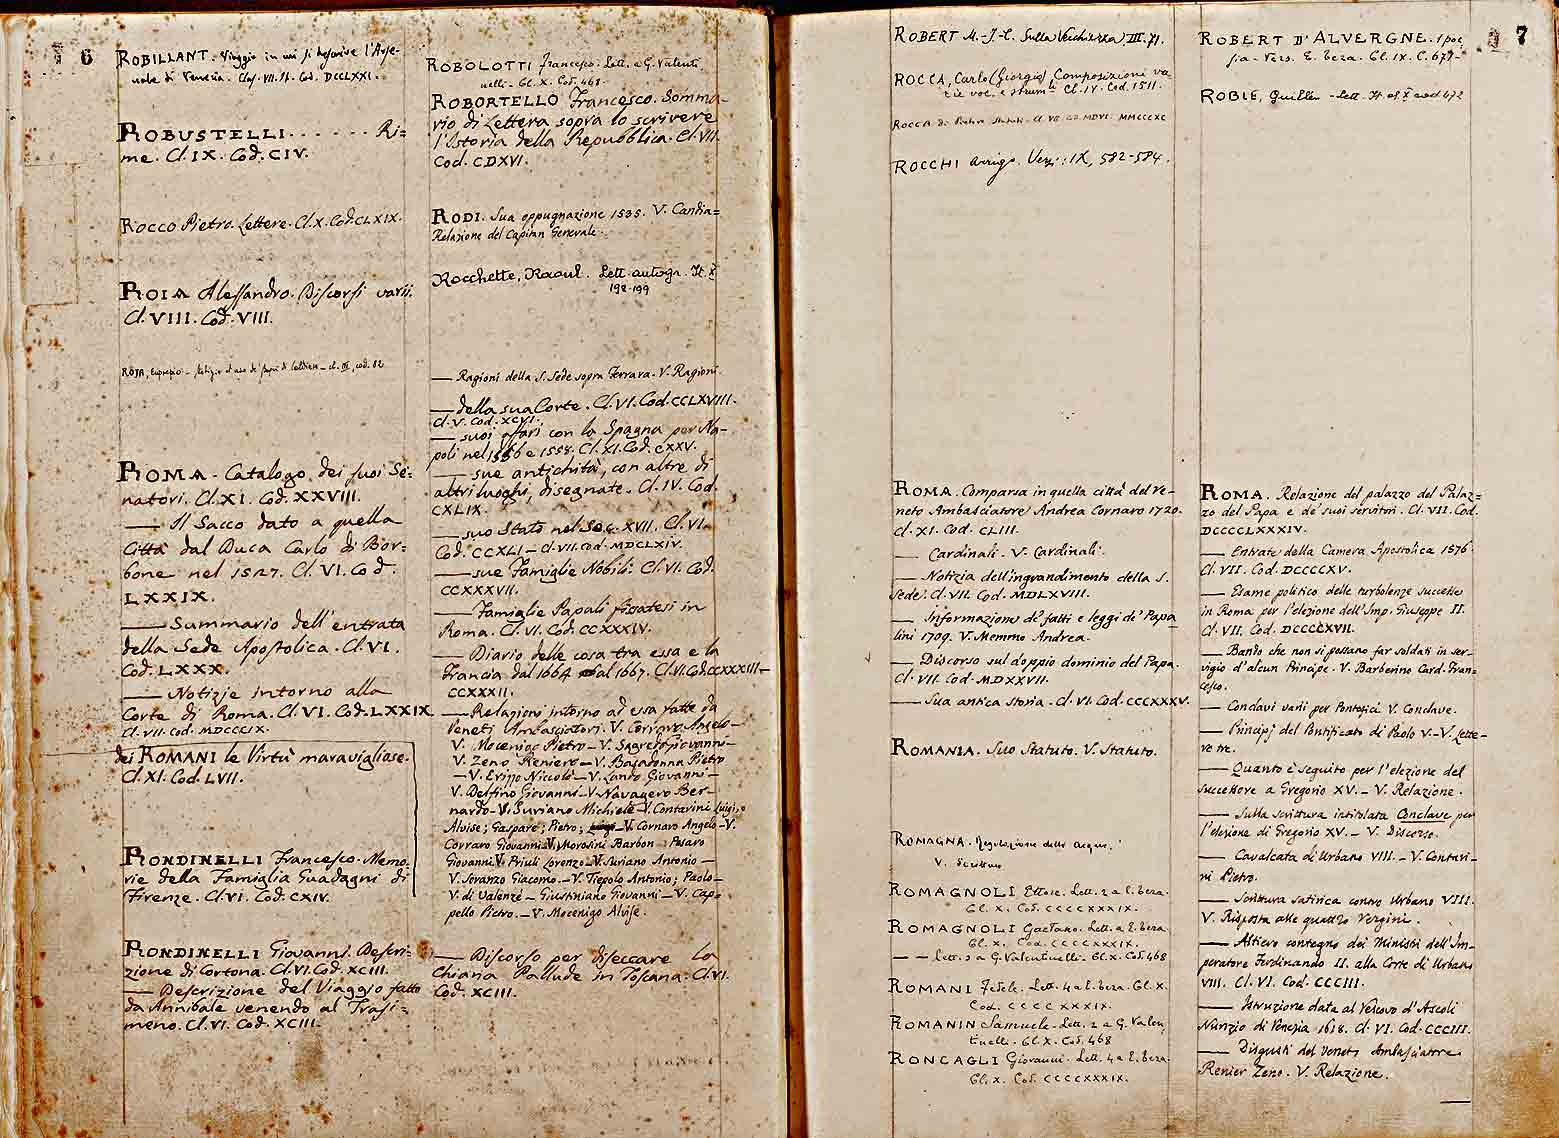 6
ROBILLANT. Viaggio in cui si descrive l'Arse-
nale di Venezia. Clas. VII. It. Cod. DCCLXXI.
ROBUSTELLI . . . . . . Ri=
me. Cl. IX. Cod. CIV.
ROCCO Pietro. Lettere. Cl. X. Cod. CLXIX.
ROIA Alessandro. Discorsi varii.
Cl. VIII. Cod. VIII.
ROJA, Euprepio - cl. III, cod. 82
ROMA - Catalogo dei suoi Se=
natori. Cl. XI. Cod. XXVIII.
— Il Sacco dato a quella
Città dal Duca Carlo di Bor=
bone nel 1527. Cl. VI. Cod.
LXXIX.
— Summario dell'entrata
della Sede Apostolica. Cl. VI.
Cod. LXXX.
— Notizie intorno alla
Corte di Roma. Cl. VI. Cod. LXXIX.
Cl. VII. Cod. MDCCCIX.
dei ROMANI le Virtù maravigliose.
Cl. XI. Cod. LVII.
RONDINELLI Francesco. Memo.
rie della Famiglia Guadagni di
Firenze. Cl. VI. Cod. CXIV.
RONDINELLI Giovanni. Descri=
zione di Cortona. Cl. VI. Cod. XCIII.
— Descrizione del Viaggio fatto
da Annibale venendo al Trasi=
meno. Cl. VI. Cod. XCIII.
ROBOLOTTI Francesco. Lett. a G. Valenti
nelli - Cl. X. Cod. 468.
ROBORTELLO Francesco. Somma=
rio di Lettera sopra lo scrivere
l'Istoria della Repubblica. Cl. VII.
Cod. CDXVI.
RODI. Sua oppugnazione 1535. V. Candia=
Relazione del Capitan Generale.
Rochette, Raoul. Lett. autogr. It. X
198-199
— Ragioni della S. Sede sopra Ferrara. V. Ragioni.
— della sua Corte. Cl. VI. Cod. CCLXVIII.
Cl. V. Cod. XCVI.
— suoi affari con la Spagna per Na-
poli nel 1556 e 1558. Cl. XI. Cod. CXXV.
— sue antichità, con altre di
altri luoghi, disegnate. Cl. IV. Cod.
CXLIX.
— suo Stato nel Sec. XVII. Cl. VI.
Cod. CCXLI - Cl. VII. Cod. MDCLXIV.
— sue Famiglie Nobili. Cl. VI. Cod.
CCXXXVII.
— Famiglie Papali in
Roma. Cl. VI. Cod. CCXXXIV.
— Diario delle cose tra essa e la
Francia dal 1664 al 1667. Cl. VI. Cod. CCXXXIII-
CCXXXII.
— Relazioni intorno ad essa fatte da
Veneti Ambasciatori. V. Corraro Angelo -
V. Mocenigo Pietro - V. Sagredo Giovanni -
V. Zeno Reniero - V. Basadonna Pietro
- V. Erizzo Niccolò - V. Lando Giovanni -
V. Delfino Giovanni - V. Navagero Ber-
nardo - V. Suriano Michiele - V. Contarini Luigi, o
Alvise; Gasparo; Pietro; - V. Cornaro Angelo - V.
Corraro Giovanni - V. Morosini Barbon - Pesaro
Giovanni V. Priuli Lorenzo - V. Suriano Antonio -
V. Soranzo Giacomo. - V. Tiepolo Antonio; Paolo -
V. di Valenze - Giustiniano Giovanni - V. Cap=
pello Pietro. - V. Mocenigo Alvise.
— Discorso per diseccare la
Chiana Pallude in Toscana. Cl. VI.
Cod. XCIII.
7
ROBERT M.-J.-C. Sulla Vecchiezza, III. 71.
ROCCA, Carlo (Giorgio) Composizioni va-
rie voc. e strum.li Cl. IV. Cod. 1511.
ROCCA di Cl. VII. Cod. MDVI. MMCCCXC
ROCCHI Arrigo. Verz.: IX, 582-584.
ROMA. Comparsa in quella città del Ve-
neto Ambasciatore Andrea Cornaro 1720.
Cl. XI. Cod. CLIII.
— Cardinali. V. Cardinali.
— Notizia dell'ingrandimento della S.
Sede. Cl. VII. Cod. MDLXVIII.
— Informazione de' fatti e leggi de' Papa
lini 1709. V. Memmo Andrea.
— Discorso sul doppio dominio del Papa.
Cl. VII. Cod. MDXXVII.
— Sua antica storia. Cl. VI. Cod. CCCXXXV.
ROMANIA. Suo Statuto. V. Statuto.
ROMAGNA. Regolazione delle acque.
V. Scritture
ROMAGNOLI Ettore. Lett. 2 a E. Teza.
Cl. X. Cod. CCCCXXXIX.
ROMAGNOLI Gaetano. Lett. a E. Teza
Cl. X. Cod. CCCCXXXIX.
— — Lett. 2 a G. Valentinelli - Cl. X. Cod. 468
ROMANI Fedele. Lett. 4 a E. Teza. Cl. X.
Cod. CCCCXXXIX.
ROMANIN Samuele. Lett. 2 a G. Valen
tinelli. Cl. X. Cod. 468
RONCAGLI Giovanni. Lett. 4 a E. Teza.
Cl. X. Cod. CCCCXXXIX.
ROBERT D'ALVERGNE. 1 poe
sia - Vers. E. Teza. Cl. IX. C. 677-
ROBLE, Guillen - Lett. It. cl. X cod. 472
ROMA. Relazione del palazzo del Palaz=
zo del Papa e de' suoi servitori. Cl. VII. Cod.
DCCCCLXXXIV.
— Entrate della Camera Apostolica 1576.
Cl. VII. Cod. DCCCCXV.
— Esame politico delle turbolenze successe
in Roma per l'elezione dell'Imp. Giuseppe II.
Cl. VII. Cod. DCCCCXVII.
— Bando che non si possano far soldati in ser-
vigio d'alcun Principe. V. Barberino Card. Fran-
cesco.
— Conclavi varii per Pontefici. V. Conclave.
— Principj del Pontificato di Paolo V. - V. Lette-
re tre.
— Quanto è seguito per l'elezione del
successore a Gregorio XV. - V. Relazione.
— Sulla scrittura intitolata Conclave per
l'elezione di Gregorio XV. - V. Discorso.
— Cavalcata di Urbano VIII. - V. Contari-
ni Pietro.
— Scrittura satirica contro Urbano VIII.
V. Risposta alle quattro Vergini.
— Altiero contegno dei Ministri dell'Im-
peratore Ferdinando II. alla Corte di Urbano
VIII. Cl. VI. Cod. CCCIII.
— Istruzione data al Vescovo d'Ascoli
Nunzio di Venezia 1618. Cl. VI. Cod. CCCIII.
— Disgusti del Veneto Ambasciatore
Renier Zeno. V. Relazione.